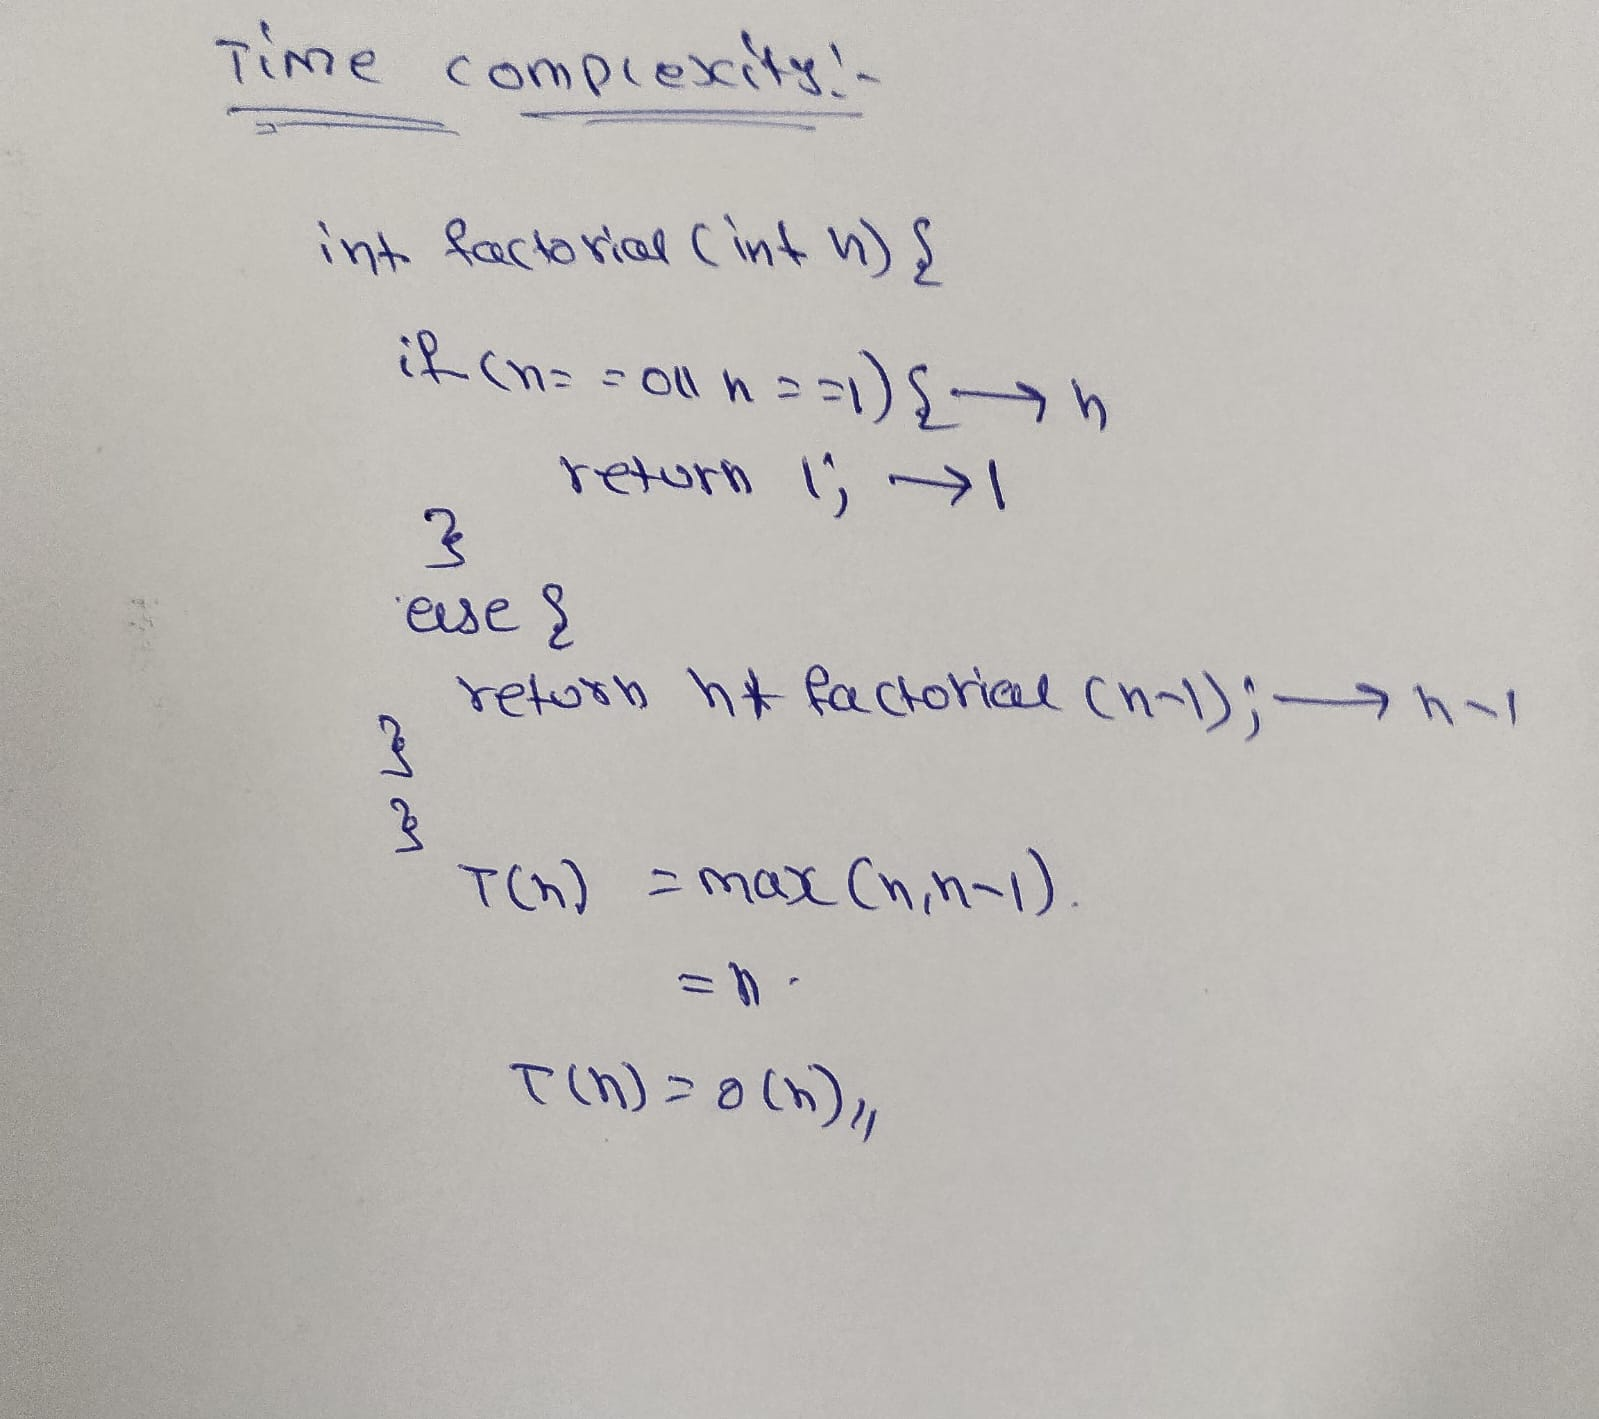 Time complexity:-
int factorial (int n) {
if (n==0|| n==1) { → n
return 1; → 1
}
else {
return n* factorial (n-1); → n-1
}
}
T(n) = max (n,n-1).
= n.
T(n) = o(n)//